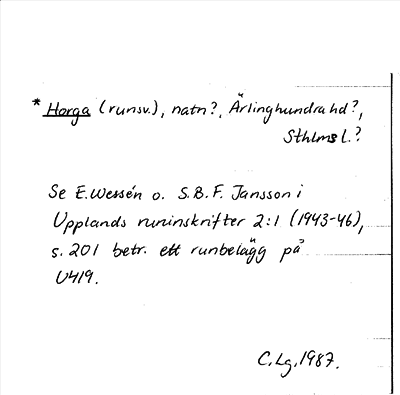 * Horga (runsv.), natn?, Ärlinghundra hd?,
Sthlms l.?
Se E. Wessén o. S.B.F. Jansson i
Upplands runinskrifter 2:1 (1943-46),
s. 201 betr. ett runbelägg på
U419.
C. Lg. 1987.